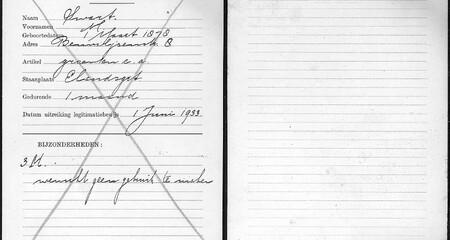 Naam Swart.
Voornamen M.
Geboortedatum 1 Maart 1878
Adres 8
Artikel groenten e.a.
Staanplaats Elandsgt
Gedurende 1 maand
Datum uitreiking legitimatiebewijs 1 Juni 1933
BIJZONDERHEDEN:
3 M.
wenscht geen gebruik te maken